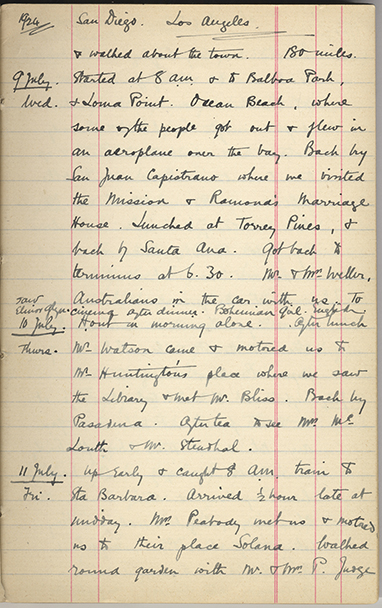 1924 San Diego. Los Angeles.
& walked about the town. 130 miles.
9 July. Started at 8 a.m. & to Balboa Park,
Wed. & Loma Point. Ocean Beach, where
some of the people got out & flew in
an aeroplane over the bay. Back by
San Juan Capistrano where we visited
the Mission & Ramona's Marriage
House. Lunched at Torrey Pines, &
back by Santa Ana. Got back to
terminus at 6.30. Mr. & Mrs Weller,
Australians in the car with us. To
saw Elinor Glyn. cinema after dinner. Bohemian Girl. English
10 July. H out in morning alone. After lunch
Thurs. Mr. Watson came & motored us to
Mr Huntington's place where we saw
the Library & met Mr. Bliss. Back by
Pasadena. After tea to see Mrs Mc
Louth & Mr. Stendhal.
11 July. Up early & caught 8 a.m. train to
Fri. Sta Barbara. Arrived ½ hour late at
midday. Mrs. Peabody met us & motored
us to their place Solana. Walked
round garden with Mr. & Mrs P. Judge